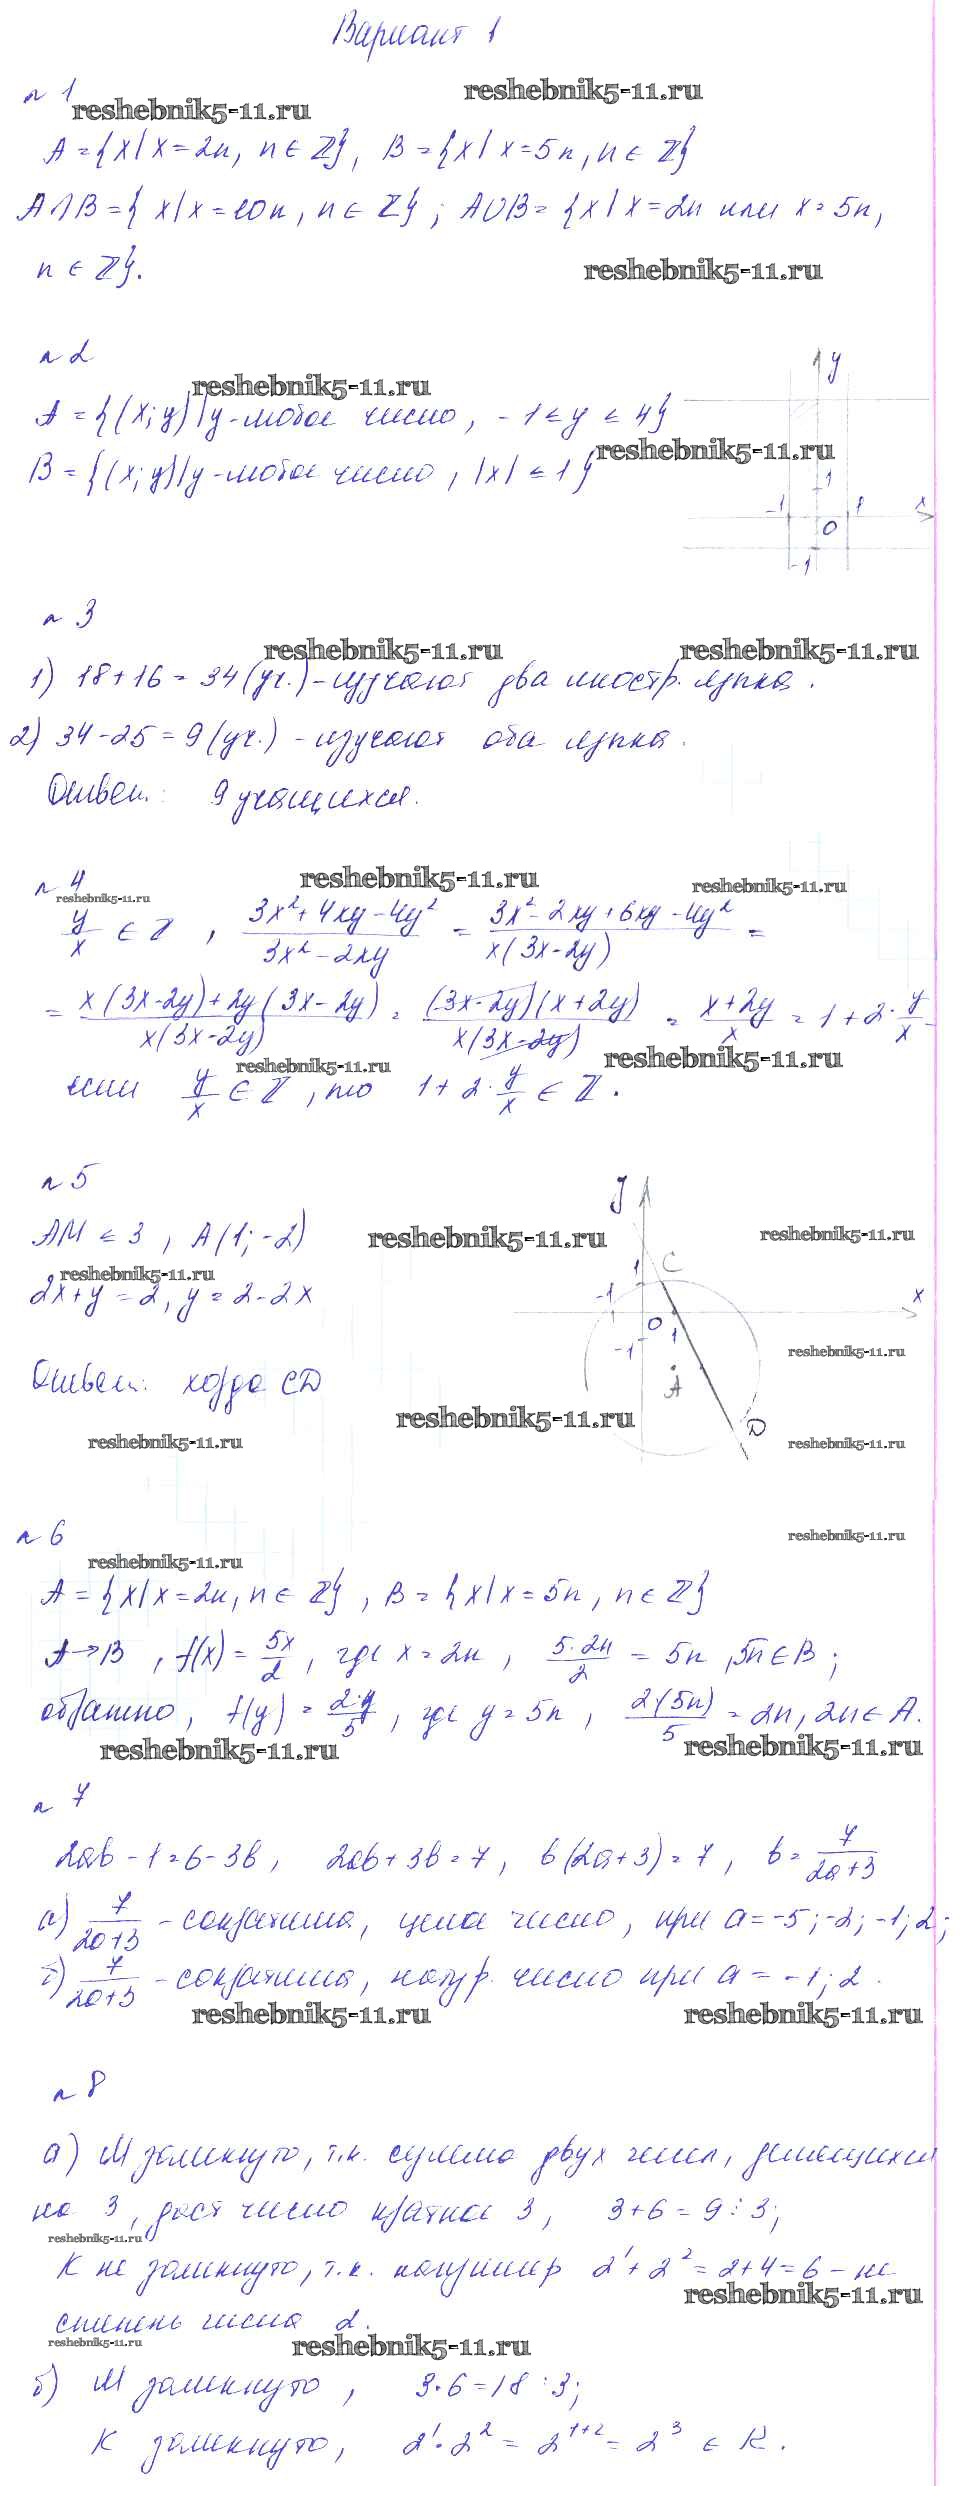 Вариант 1
№ 1
reshebnik5-11.ru
reshebnik5-11.ru
A = {x | x = 2n, n ∈ Z}, B = {x | x = 5n, n ∈ Z}
A∩B = {x | x = 10n, n ∈ Z}; A∪B = {x | x = 2n или x = 5n,
n ∈ Z}.
reshebnik5-11.ru
№ 2
reshebnik5-11.ru
A = {(x; y) | y - любое число, -1 ≤ y ≤ 4}
reshebnik5-11.ru
B = {(x; y) | y - любое число, |x| ≤ 1}
1 y
1
-1 1 x
0
-1
№ 3
reshebnik5-11.ru
reshebnik5-11.ru
1) 18 + 16 = 34 (уч.) - изучают два иностр. языка.
2) 34 - 25 = 9 (уч.) - изучают оба языка.
Ответ: 9 учащихся.
№ 4
reshebnik5-11.ru
reshebnik5-11.ru
reshebnik5-11.ru
y/x ∈ Z, (3x² + 4xy - 4y²)/(3x² - 2xy) = (3x² - 2xy + 6xy - 4y²)/(x(3x - 2y)) =
= (x(3x - 2y) + 2y(3x - 2y))/(x(3x - 2y)) = ((3x - 2y)(x + 2y))/(x(3x - 2y)) = (x + 2y)/x = 1 + 2·y/x -
reshebnik5-11.ru
reshebnik5-11.ru
если y/x ∈ Z, то 1 + 2·y/x ∈ Z.
№ 5
AM ≤ 3, A(1; -2)
reshebnik5-11.ru
reshebnik5-11.ru
reshebnik5-11.ru
2x + y = 2, y = 2 - 2x
y
1 C
-1 x
0 1
-1
A
D
reshebnik5-11.ru
Ответ: хорда CD
reshebnik5-11.ru
reshebnik5-11.ru
reshebnik5-11.ru
№ 6
reshebnik5-11.ru
reshebnik5-11.ru
A = {x | x = 2n, n ∈ Z}, B = {x | x = 5n, n ∈ Z}
A → B, f(x) = 5x/2, где x = 2n, 5·2n/2 = 5n, 5n ∈ B;
обратно, f(y) = 2·y/5, где y = 5n, 2·(5n)/5 = 2n, 2n ∈ A.
reshebnik5-11.ru
reshebnik5-11.ru
№ 7
2ab - 1 = 6 - 3b, 2ab + 3b = 7, b(2a + 3) = 7, b = 7/(2a + 3)
а) 7/(2a + 3) - сократима, цела число, при a = -5; -2; -1; 2;
б) 7/(2a + 3) - сократима, натур. число при a = -1; 2.
reshebnik5-11.ru
reshebnik5-11.ru
№ 8
а) M замкнуто, т.к. сумма двух чисел, делящихся
на 3, даст число кратное 3, 3 + 6 = 9 ⋮ 3;
reshebnik5-11.ru
K не замкнуто, т.к. например 2¹ + 2² = 2 + 4 = 6 - не
reshebnik5-11.ru
степень числа 2.
reshebnik5-11.ru
reshebnik5-11.ru
б) M замкнуто, 3·6 = 18 ⋮ 3;
K замкнуто, 2¹·2² = 2¹⁺² = 2³ ∈ K.